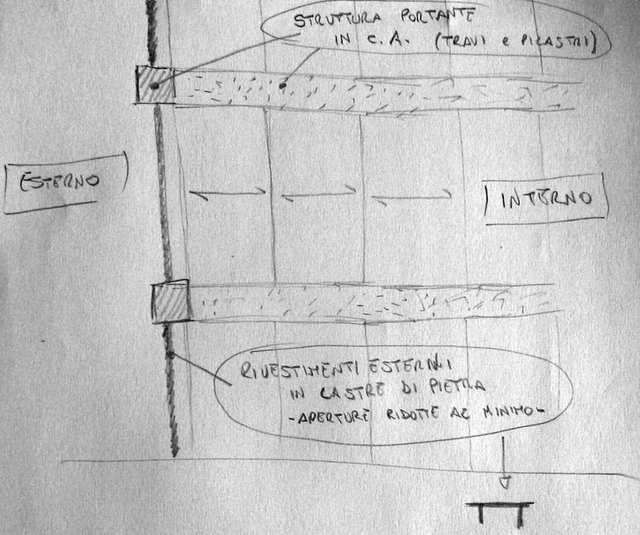 STRUTTURA PORTANTE
IN C.A. (TRAVI e PILASTRI)
ESTERNO
INTERNO
RIVESTIMENTI ESTERNI
IN LASTRE DI PIETRA
- APERTURE RIDOTTE AL MINIMO -